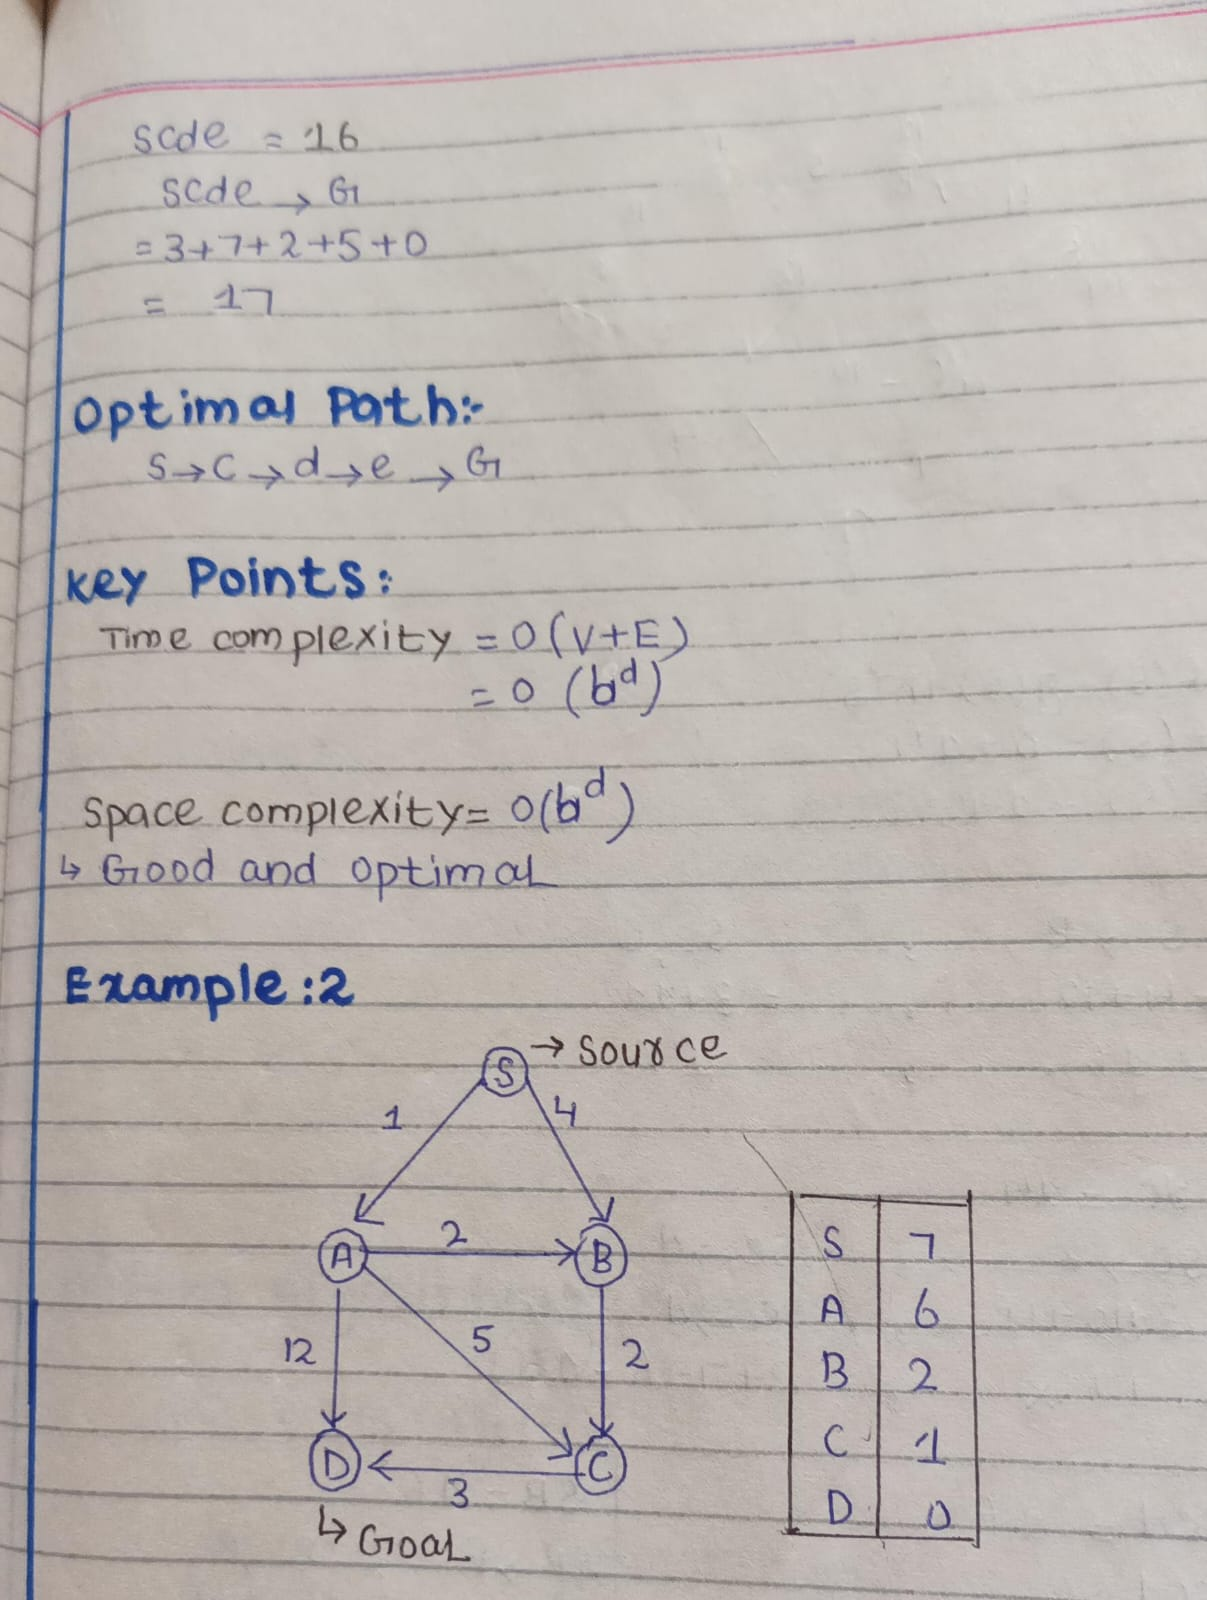 scde = 16
scde → G
= 3+7+2+5+0
= 17
Optimal Path:-
S→C→d→e→G
Key Points:
Time complexity = O(V+E)
= O (b^d)
Space complexity= O(b^d)
↳ Good and optimal
Example:2
S → Source
1 4
A 2 B
12 5 2
D 3 C
↳ Goal
S 7
A 6
B 2
C 1
D 0